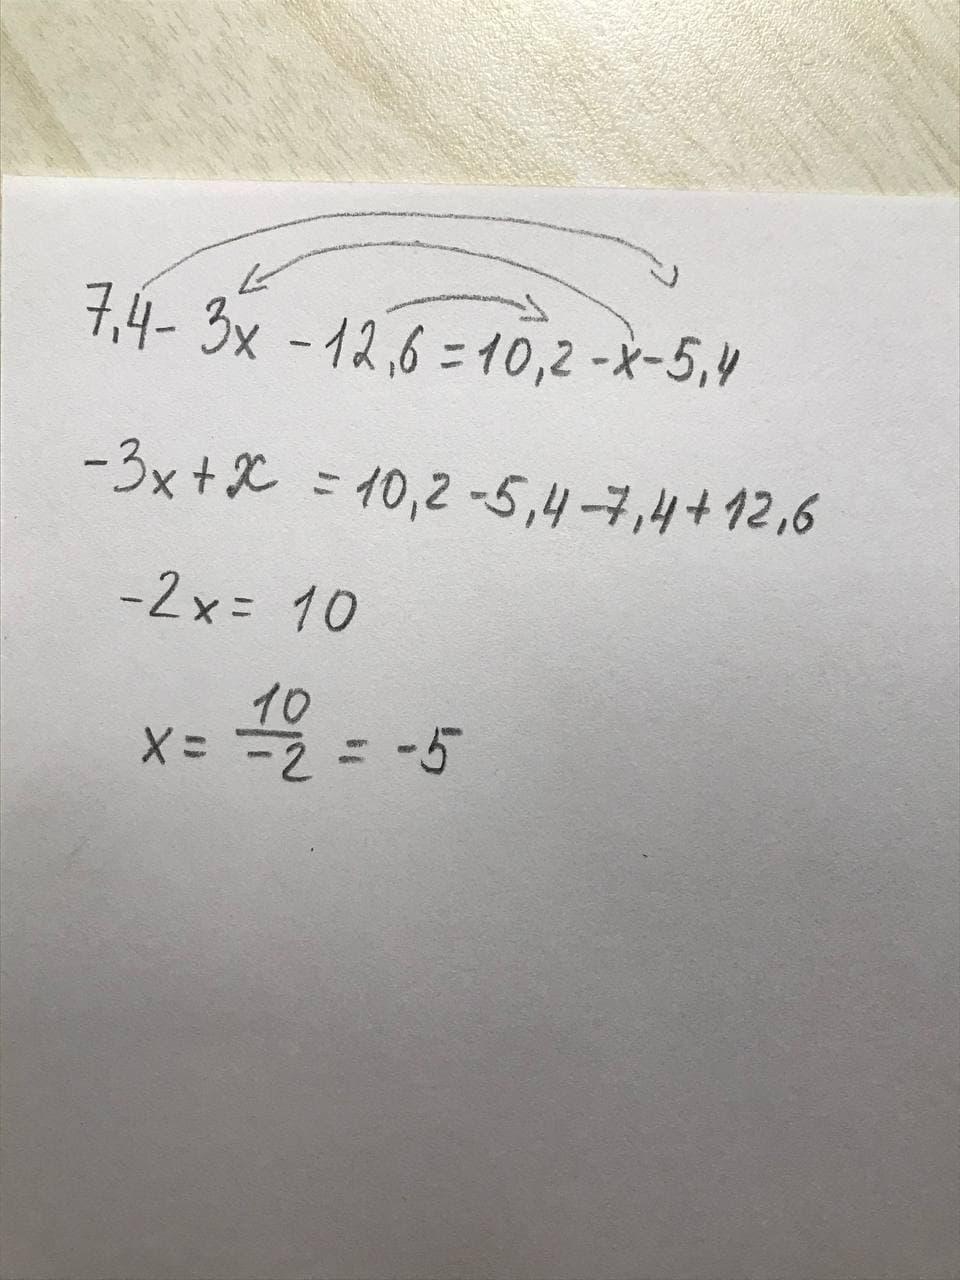 7,4 - 3x - 12,6 = 10,2 - x - 5,4
-3x + x = 10,2 - 5,4 - 7,4 + 12,6
-2x = 10
x = 10/-2 = -5